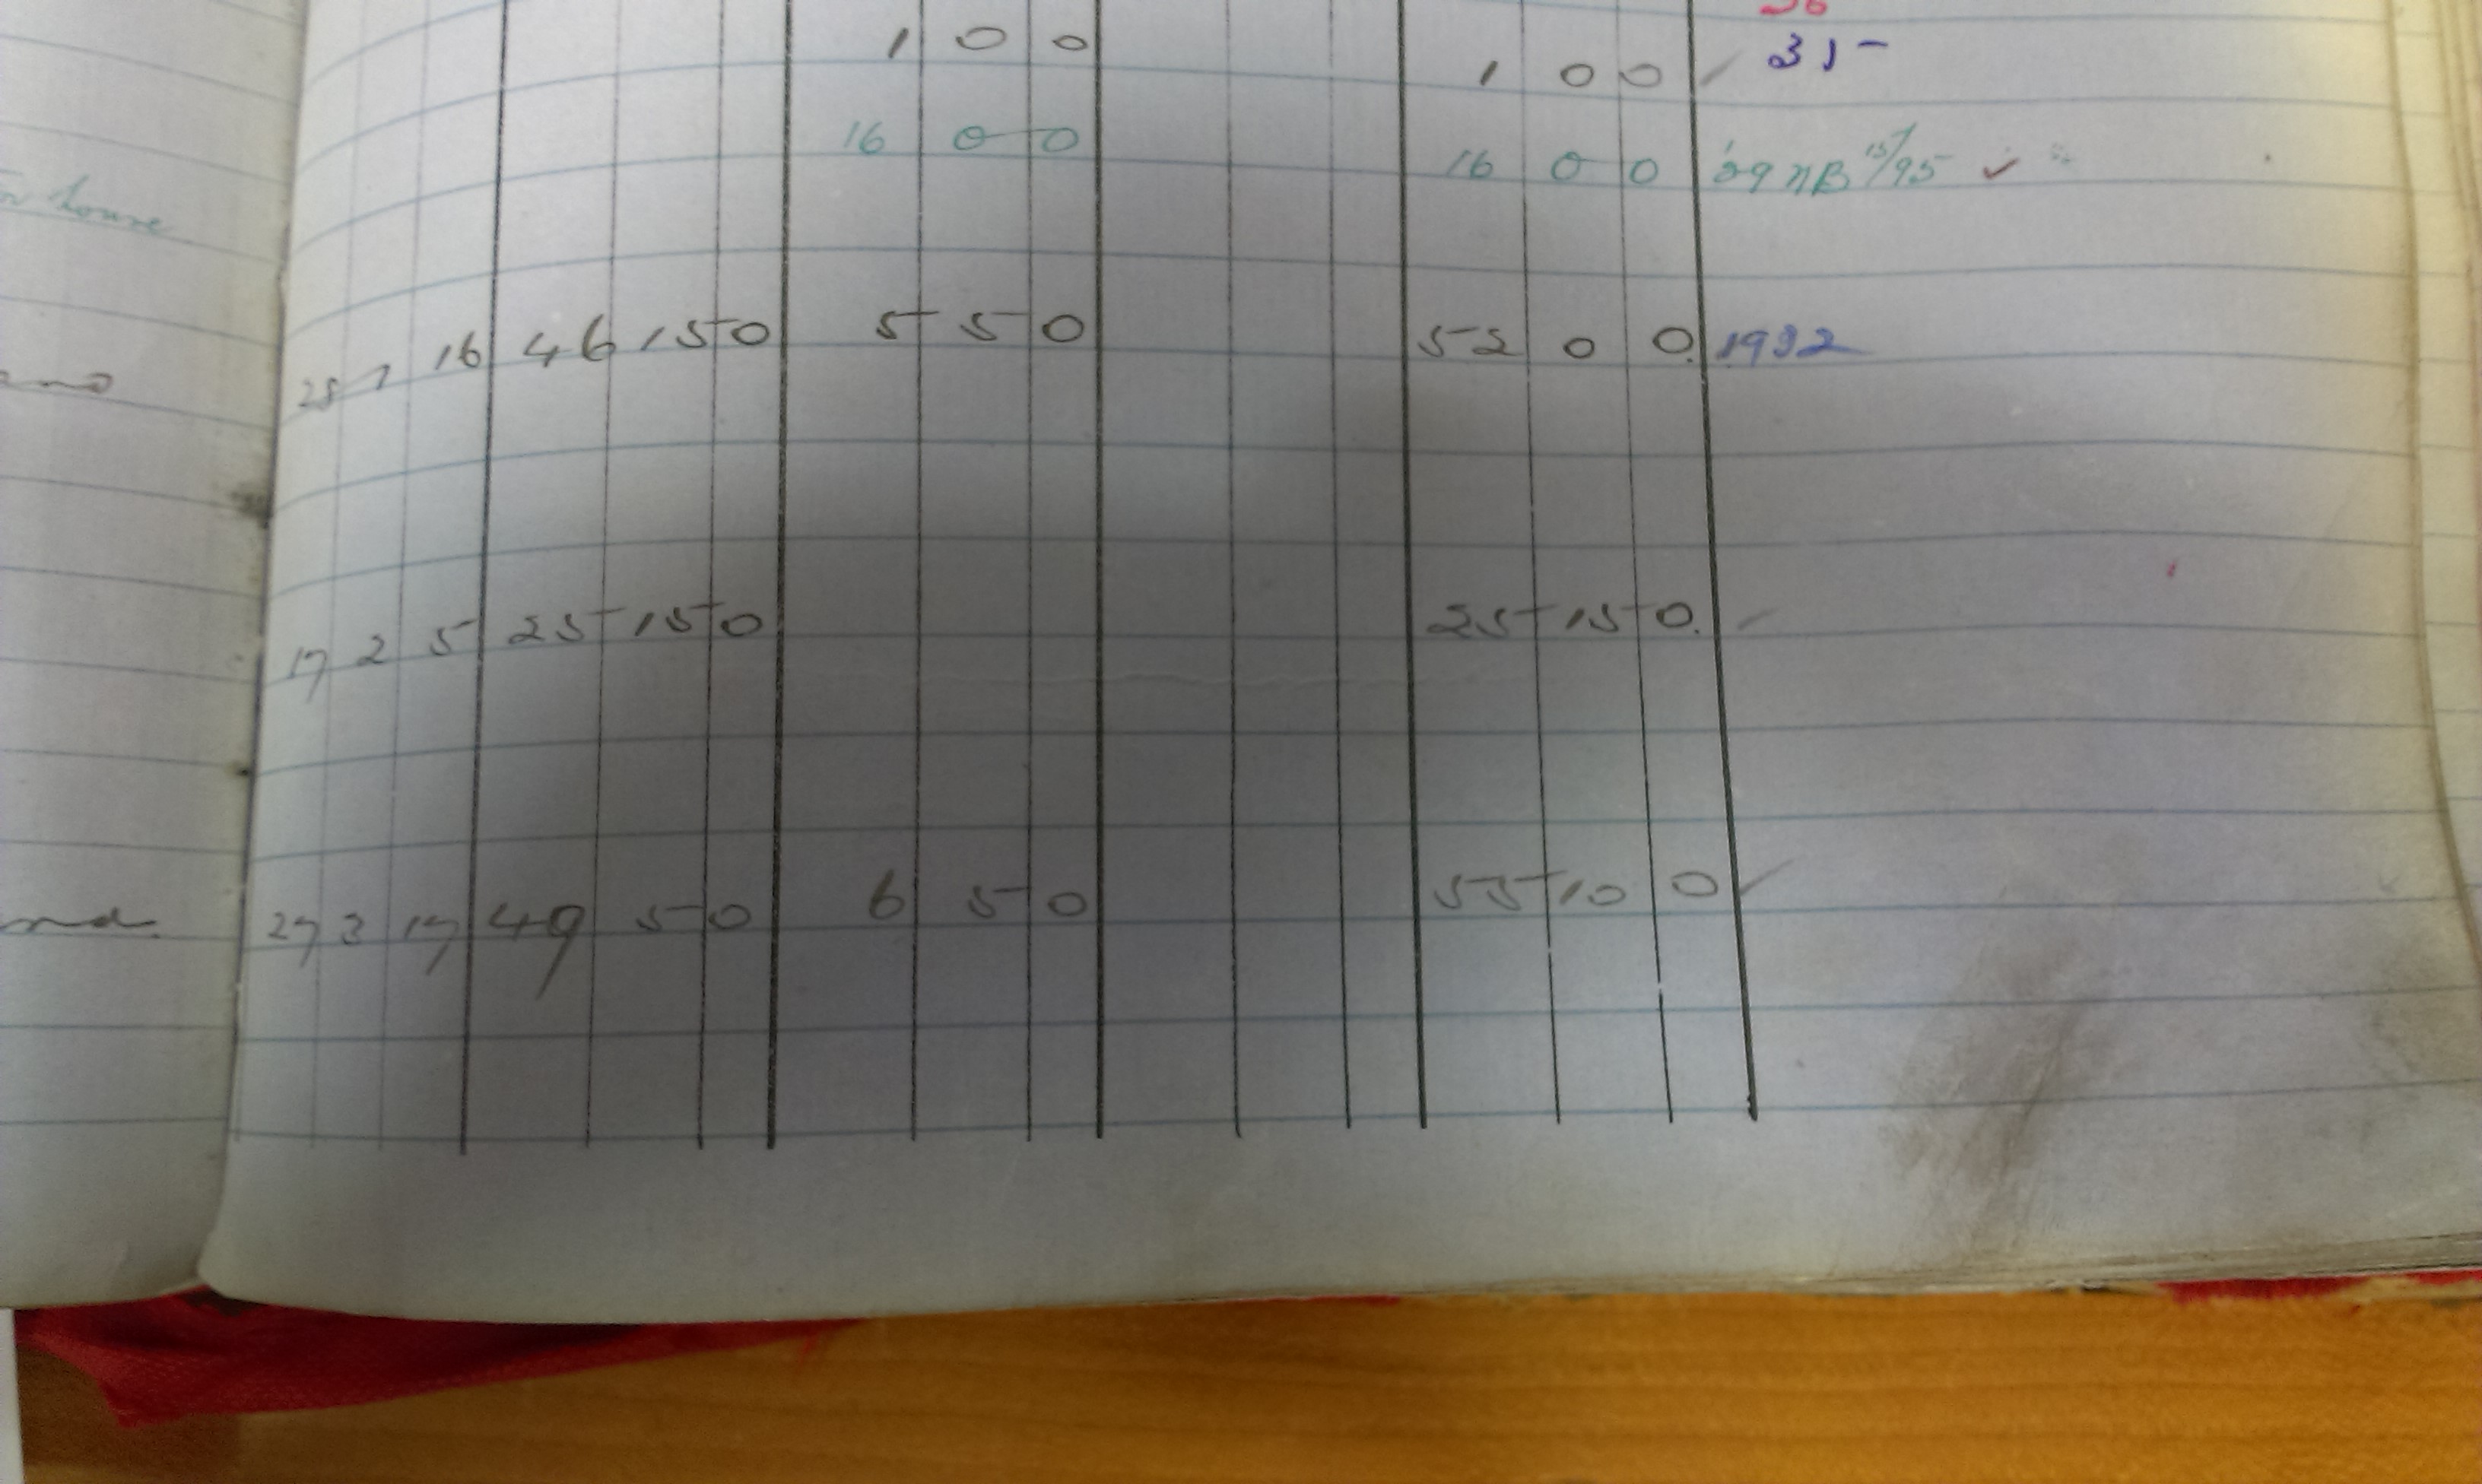 1 0 0 1 0 0 31-
16 0 0 16 0 0 '29 NB 15/95 ✓
house
25 1 16 46 15 0 5 5 0 52 0 0. 1932
17 2 5 25 15 0 25 15 0.
27 3 17 49 5 0 6 5 0 55 10 0